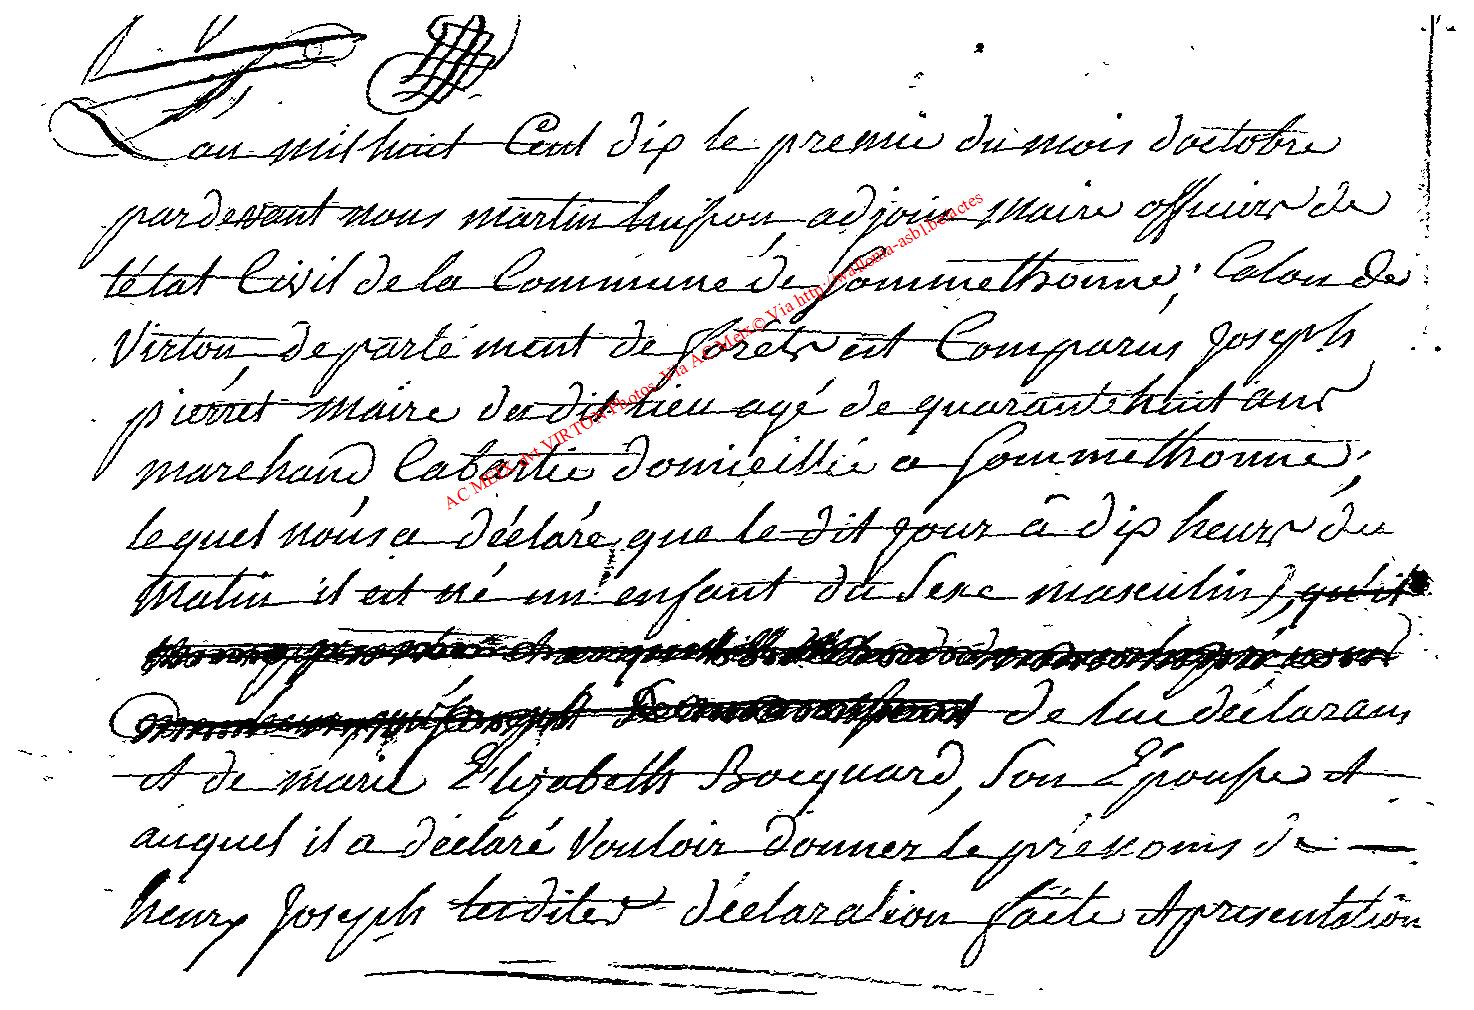 L'an mil huit Cent dix le premie du mois doctobre
pardevant nous martin husson adjoin maire officier de
l'état Civil de la Commune de Sommethonne, Caton de
Virton departément de foréts est Comparus Joseph
pierret maire du dit lieu agé de quarante huit ans
marchand Cabartie domicillié a Sommethonne,
lequel nous a déclaré que le dit jour â dix heures du
matin il est né un enfant du Sexe masculin, qu'il
de luc déclarans
et de marie Elizabeth Bocquard, Son Epousse et
auquel il a déclaré Vouloir donner le prénoms de
henry Joseph lesdites déclaration faite et presentation
AC MEIX dvt VIRTON Photos. Via AC Meix© Via http://wallonia-asbl.be/actes